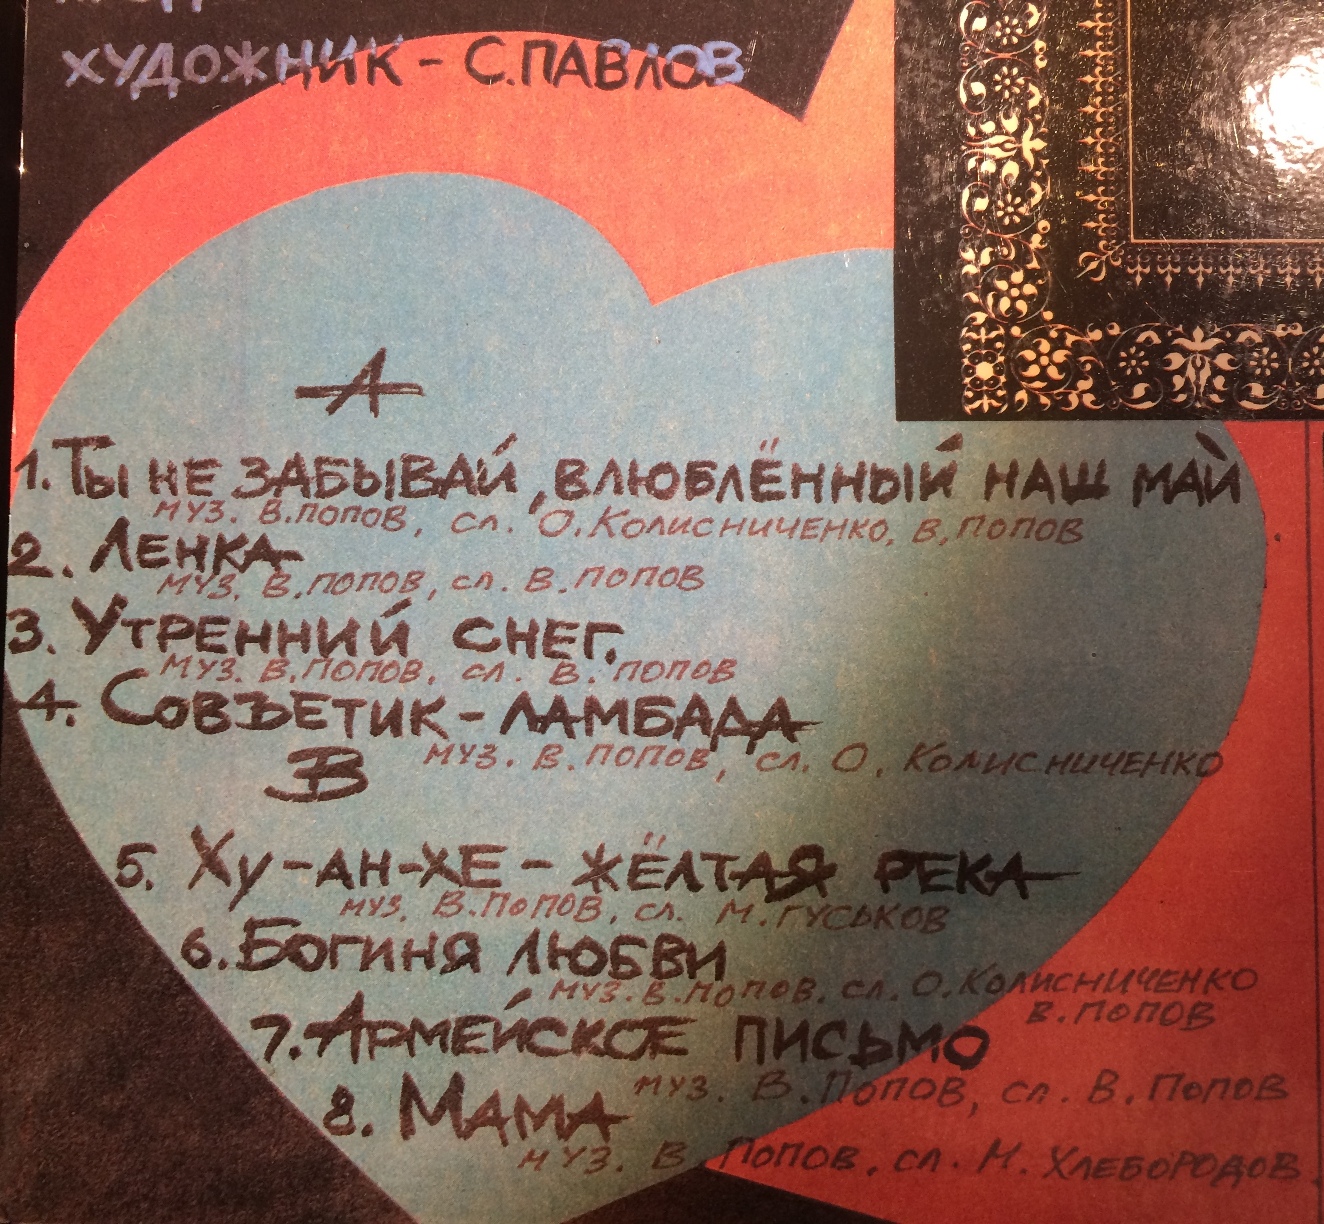 ХУДОЖНИК - С.ПАВЛОВ
А
1. ТЫ НЕ ЗАБЫВАЙ, ВЛЮБЛЁННЫЙ НАШ МАЙ
МУЗ. В.ПОПОВ, СЛ. О.КОЛИСНИЧЕНКО, В.ПОПОВ
2. ЛЕНКА
МУЗ. В.ПОПОВ, СЛ. В.ПОПОВ
3. УТРЕННИЙ СНЕГ.
МУЗ. В.ПОПОВ, СЛ. В. ПОПОВ
4. СОВЪЕТИК - ЛАМБАДА
МУЗ. В. ПОПОВ, СЛ. О. КОЛИСНИЧЕНКО
В
5. ХУ-АН-ХЕ - ЖЁЛТАЯ РЕКА
МУЗ. В.ПОПОВ, СЛ. М.ГУСЬКОВ
6. БОГИНЯ ЛЮБВИ
МУЗ. В.ПОПОВ. СЛ. О.КОЛИСНИЧЕНКО
В.ПОПОВ
7. АРМЕЙСКОЕ ПИСЬМО
МУЗ. В.ПОПОВ, СЛ. В. ПОПОВ
8. МАМА
МУЗ. В ПОПОВ. СЛ. М. ХЛЕБОРОДОВ.